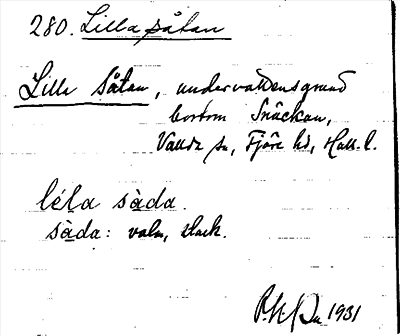 280. Lilla såtan
Lilla Såtan, undervattensgrund
bortom Snäckan,
Vallda sn, Fjäre hd, Hall. l.
léla sàda.
sàda: volm, stack.
1931